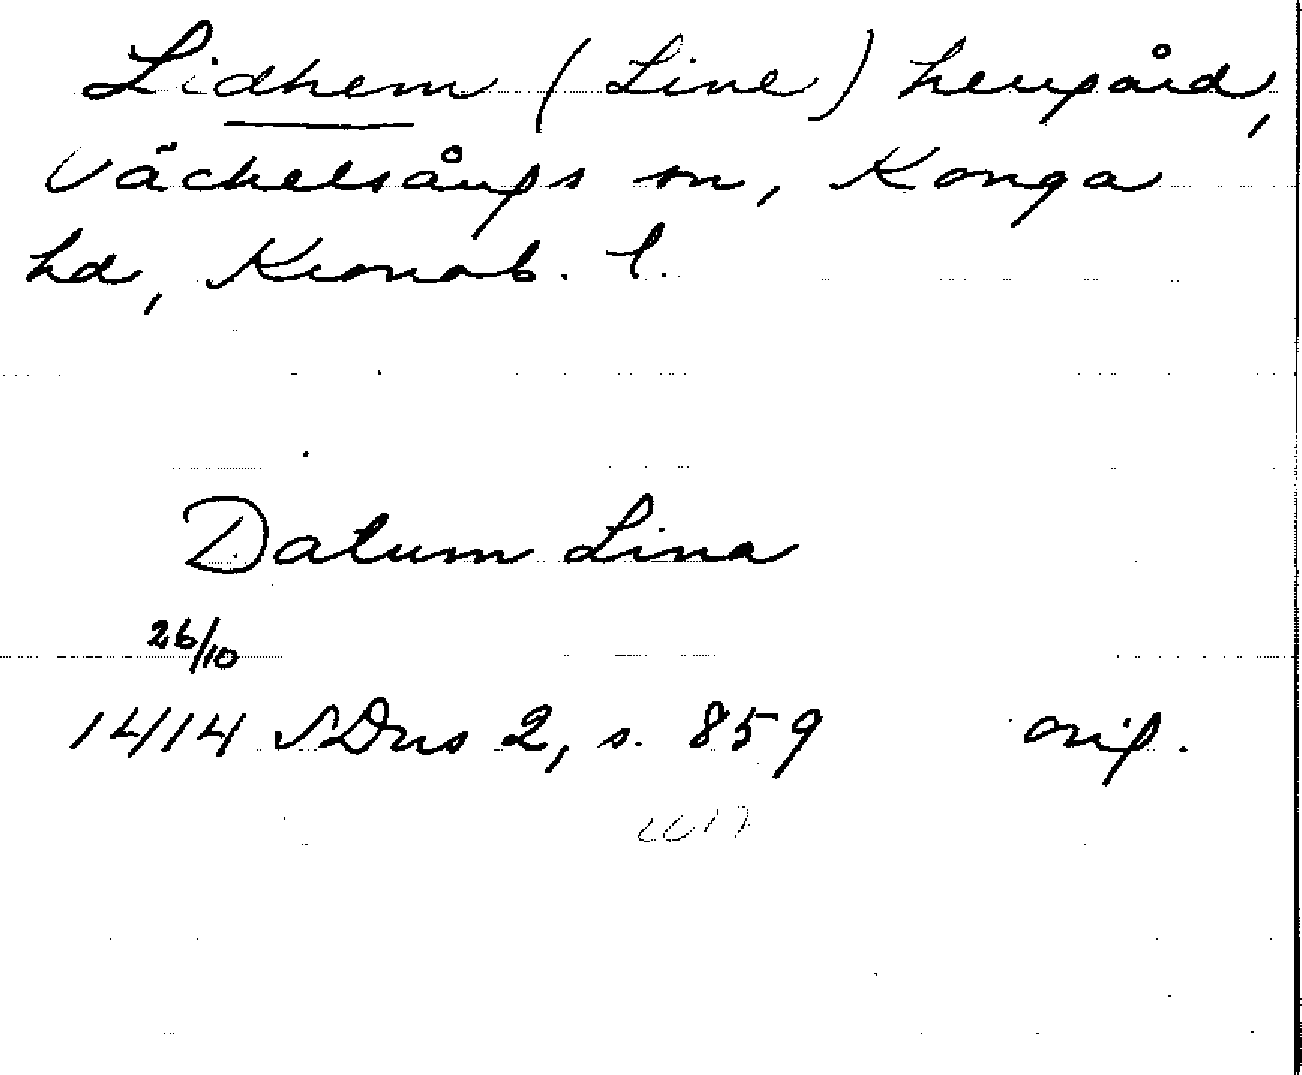 Lidhem (Line) herrgård,
Väckelsångs sn, Konga
hd, Kronob. l.
Datum Lina
26/10
1414 SDns 2, s. 859 orig.